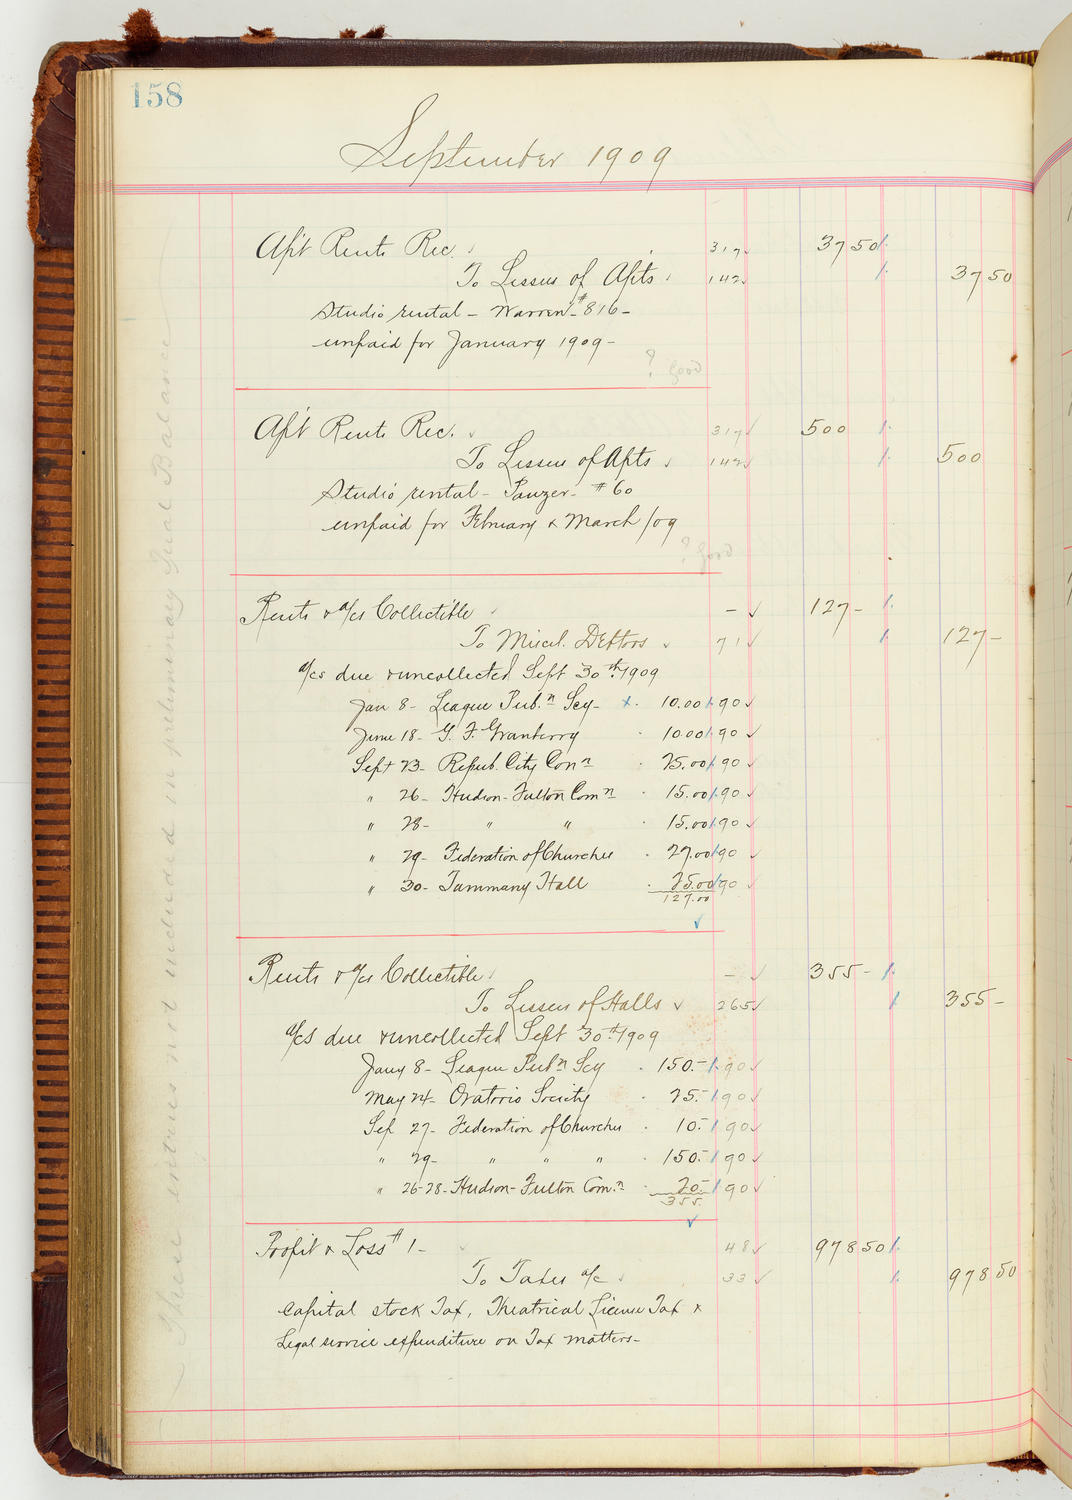 158
September 1909
Apt Rents Rec. 317 37 50
To Lessees of Apts 142 37 50
Studio rental - Warren - #816 -
unpaid for January 1909 -
? good
Apt Rents Rec. 317 500
To Lessees of Apts 142 500
Studio rental - Panzer - #60
unpaid for February & March /09
? good
Rents & a/cs Collectible - 127 -
To Miscl. Debtors 71 127 -
a/cs due & uncollected Sept 30th 1909
Jan 8 - League Pub.n Scy - x 10.00 90
June 18 - G. F. Granberry 10.00 90
Sept 23 - Repub. City Con n 25.00 90
" 26 - Hudson-Fulton Com n 15.00 90
" 28 - " " 15.00 90
" 29 - Federation of Churches 27.00 90
" 30 - Tammany Hall 25.00 90
127.00
Rents & a/cs Collectible - 355 -
To Lessees of Halls 265 355 -
a/cs due & uncollected Sept 30th 1909
Jany 8 - League Pub n Scy 150.- 90
May 24 - Oratorio Society 25.- 90
Sep 27 - Federation of Churches 10.- 90
" 29 - " " " 150.- 90
" 26-28 - Hudson-Fulton Com. n 20.- 90
355.
Profit & Loss #1 - 48 978 50
To Taxes a/c 33 978 50
Capital stock Tax, Theatrical License Tax &
Legal service expenditure on Tax matters -
These entries not included in preliminary Trial Balance